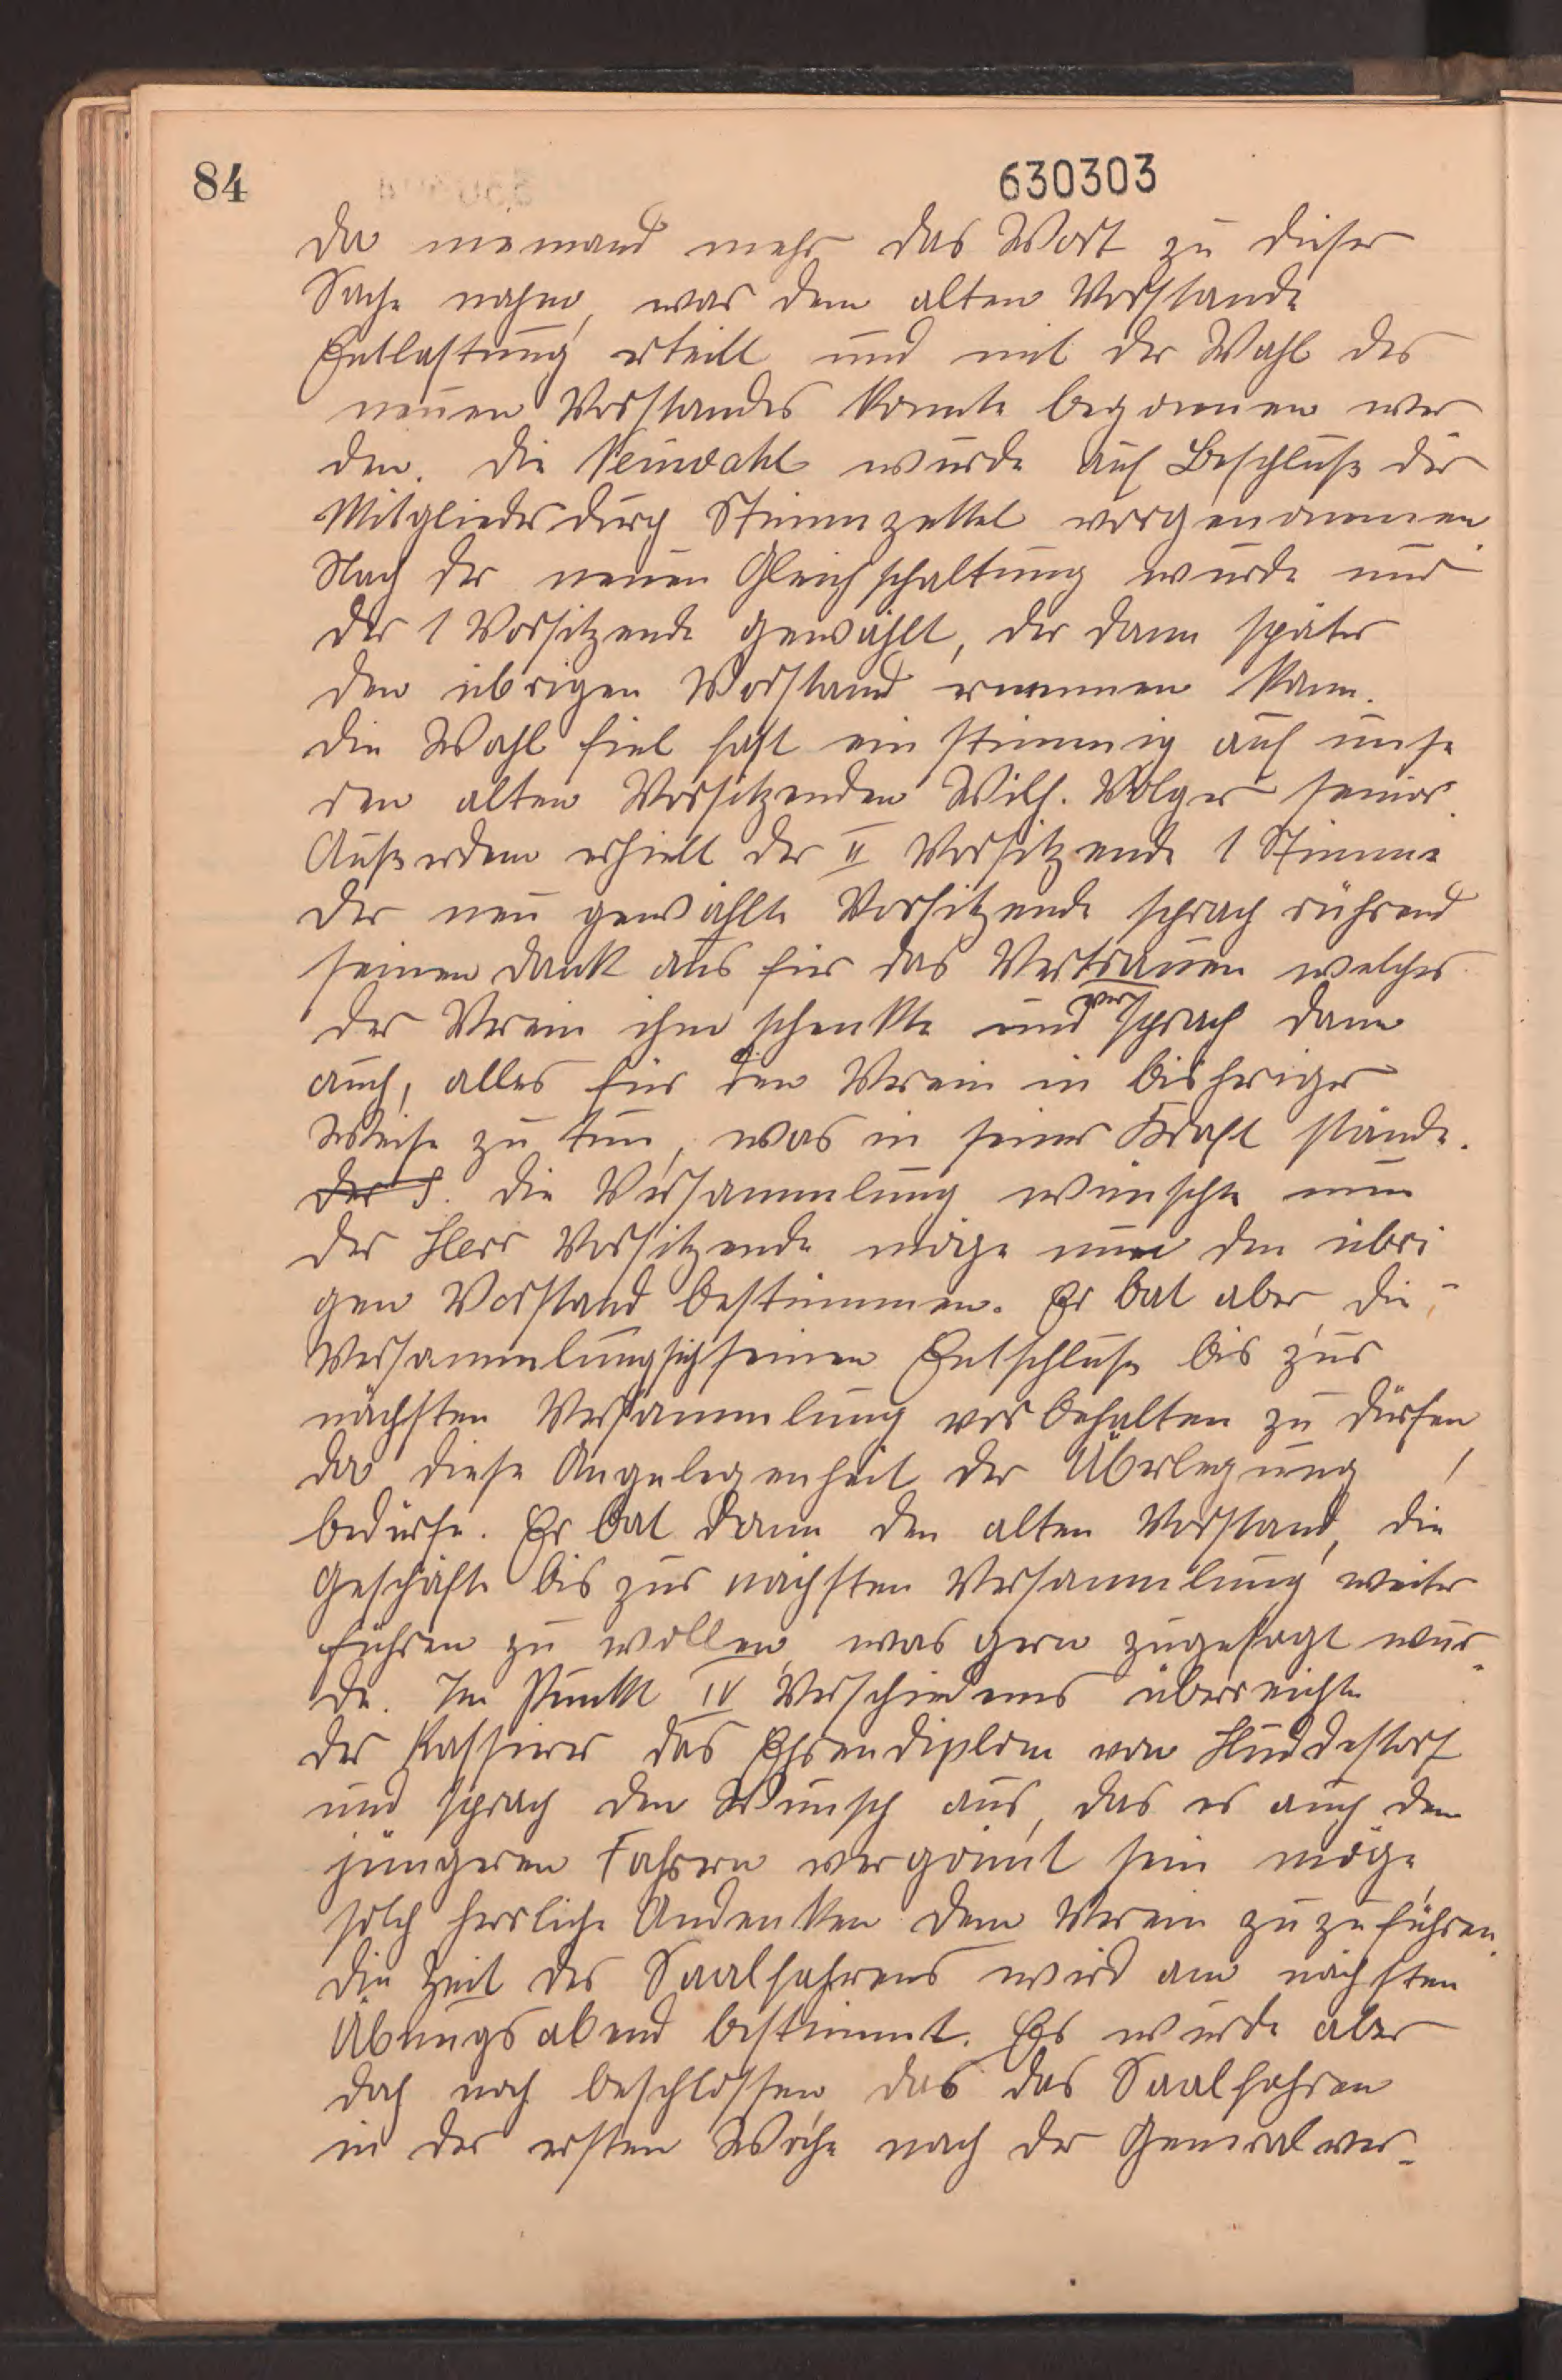 84
630303
Da niemand mehr das Wort zu dieser
Sache nahm, war dem alten Vorstande
Entlastung erteilt und mit der Wahl des
neuen Vorstandes konnte begonnen wer
den. Die Neuwahl wurde auf Beschluß der
Mitglieder durch Stimmzettel vorgenommen.
Nach der neuen Gleichschaltung wurde nur
der 1 Vorsitzende gewählt, der dann später
den übrigen Vorstand ernennen kann.
Die Wahl fiel fast ein stimmig auf unse
ren alten Vorsitzenden Wilh. Volger senior.
Außerdem erhielt der II Vorsitzende 1 Stimme
Der neu gewählte Vorsitzende sprach rührend
seinen Dank aus für das Vertrauen welches
der Verein ihm schenkte und versprach dann
auch, alles für den Verein in bisheriger
Weise zu tun, was in seiner Kraft stände.
Der S. Die Versammlung wünschte nun
der Herr Vorsitzende möge nun den übri
gen Vorstand bestimmen. Er bat aber die
Versammlung sich seinen Entschluß bis zur
nächsten Versammlung vorbehalten zu dürfen,
da diese Angelegenheit der Überlegung
bedürfe. Er bat dann den alten Vorstand, die
Geschäfte bis zur nächsten Versammlung weiter
führen zu wollen, was gern zugesagt wur-
de. Im Punkt IV Verschiedenes überreichte
der Kassierer das Ehrendiplom von Huddestorf
und sprach den Wunsch aus, das es auch den
jüngeren Fahrern vergönnt sein möge,
solch herrliche Andenken dem Verein zuzuführen.
Die Zeit des Saalfahrens wird am nächsten
Übungsabend bestimmt. Es wurde aber
doch noch beschlossen, das das Saalfahren
in der ersten Woche nach der Generalver-